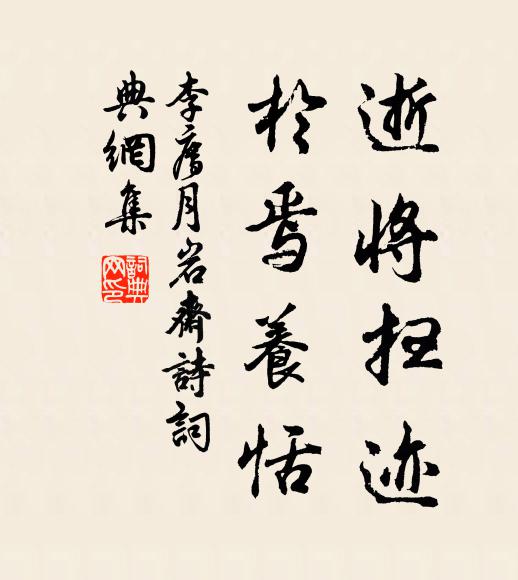 逝將扫迹
於焉養恬
李廌月岩齋詩詞
典網集
詞典
网印